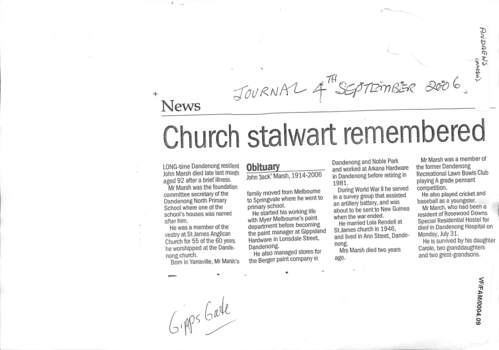 JOURNAL 4TH SEPTEMBER 2006.
News
Church stalwart remembered
LONG-time Dandenong resident
John Marsh died late last month
aged 92 after a brief illness.
Mr Marsh was the foundation
committee secretary of the
Dandenong North Primary
School where one of the
school's houses was named
after him.
He was a member of the
vestry at St James Anglican
Church for 55 of the 60 years
he worshipped at the Dande-
nong church.
Born in Yarraville, Mr Marsh's
Obituary
John 'Jack' Marsh, 1914-2006
family moved from Melbourne
to Springvale where he went to
primary school.
He started his working life
with Myer Melbourne's paint
department before becoming
the paint manager at Gippsland
Hardware in Lonsdale Street,
Dandenong.
He also managed stores for
the Berger paint company in
Dandenong and Noble Park
and worked at Arkana Hardware
in Dandenong before retiring in
1981.
During World War II he served
in a survey group that assisted
an artillery battery, and was
about to be sent to New Guinea
when the war ended.
He married Lola Rendell at
St James church in 1946,
and lived in Ann Street, Dande-
nong.
Mrs Marsh died two years
ago.
Mr Marsh was a member of
the former Dandenong
Recreational Lawn Bowls Club
playing A grade pennant
competition.
He also played cricket and
baseball as a youngster.
Mr Marsh, who had been a
resident of Rosewood Downs
Special Residential Hostel for
died in Dandenong Hospital on
Monday, July 31.
He is survived by his daughter
Carole, two granddaughters
and two great-grandsons.
Gipps Gate
VF/FAM0004.09